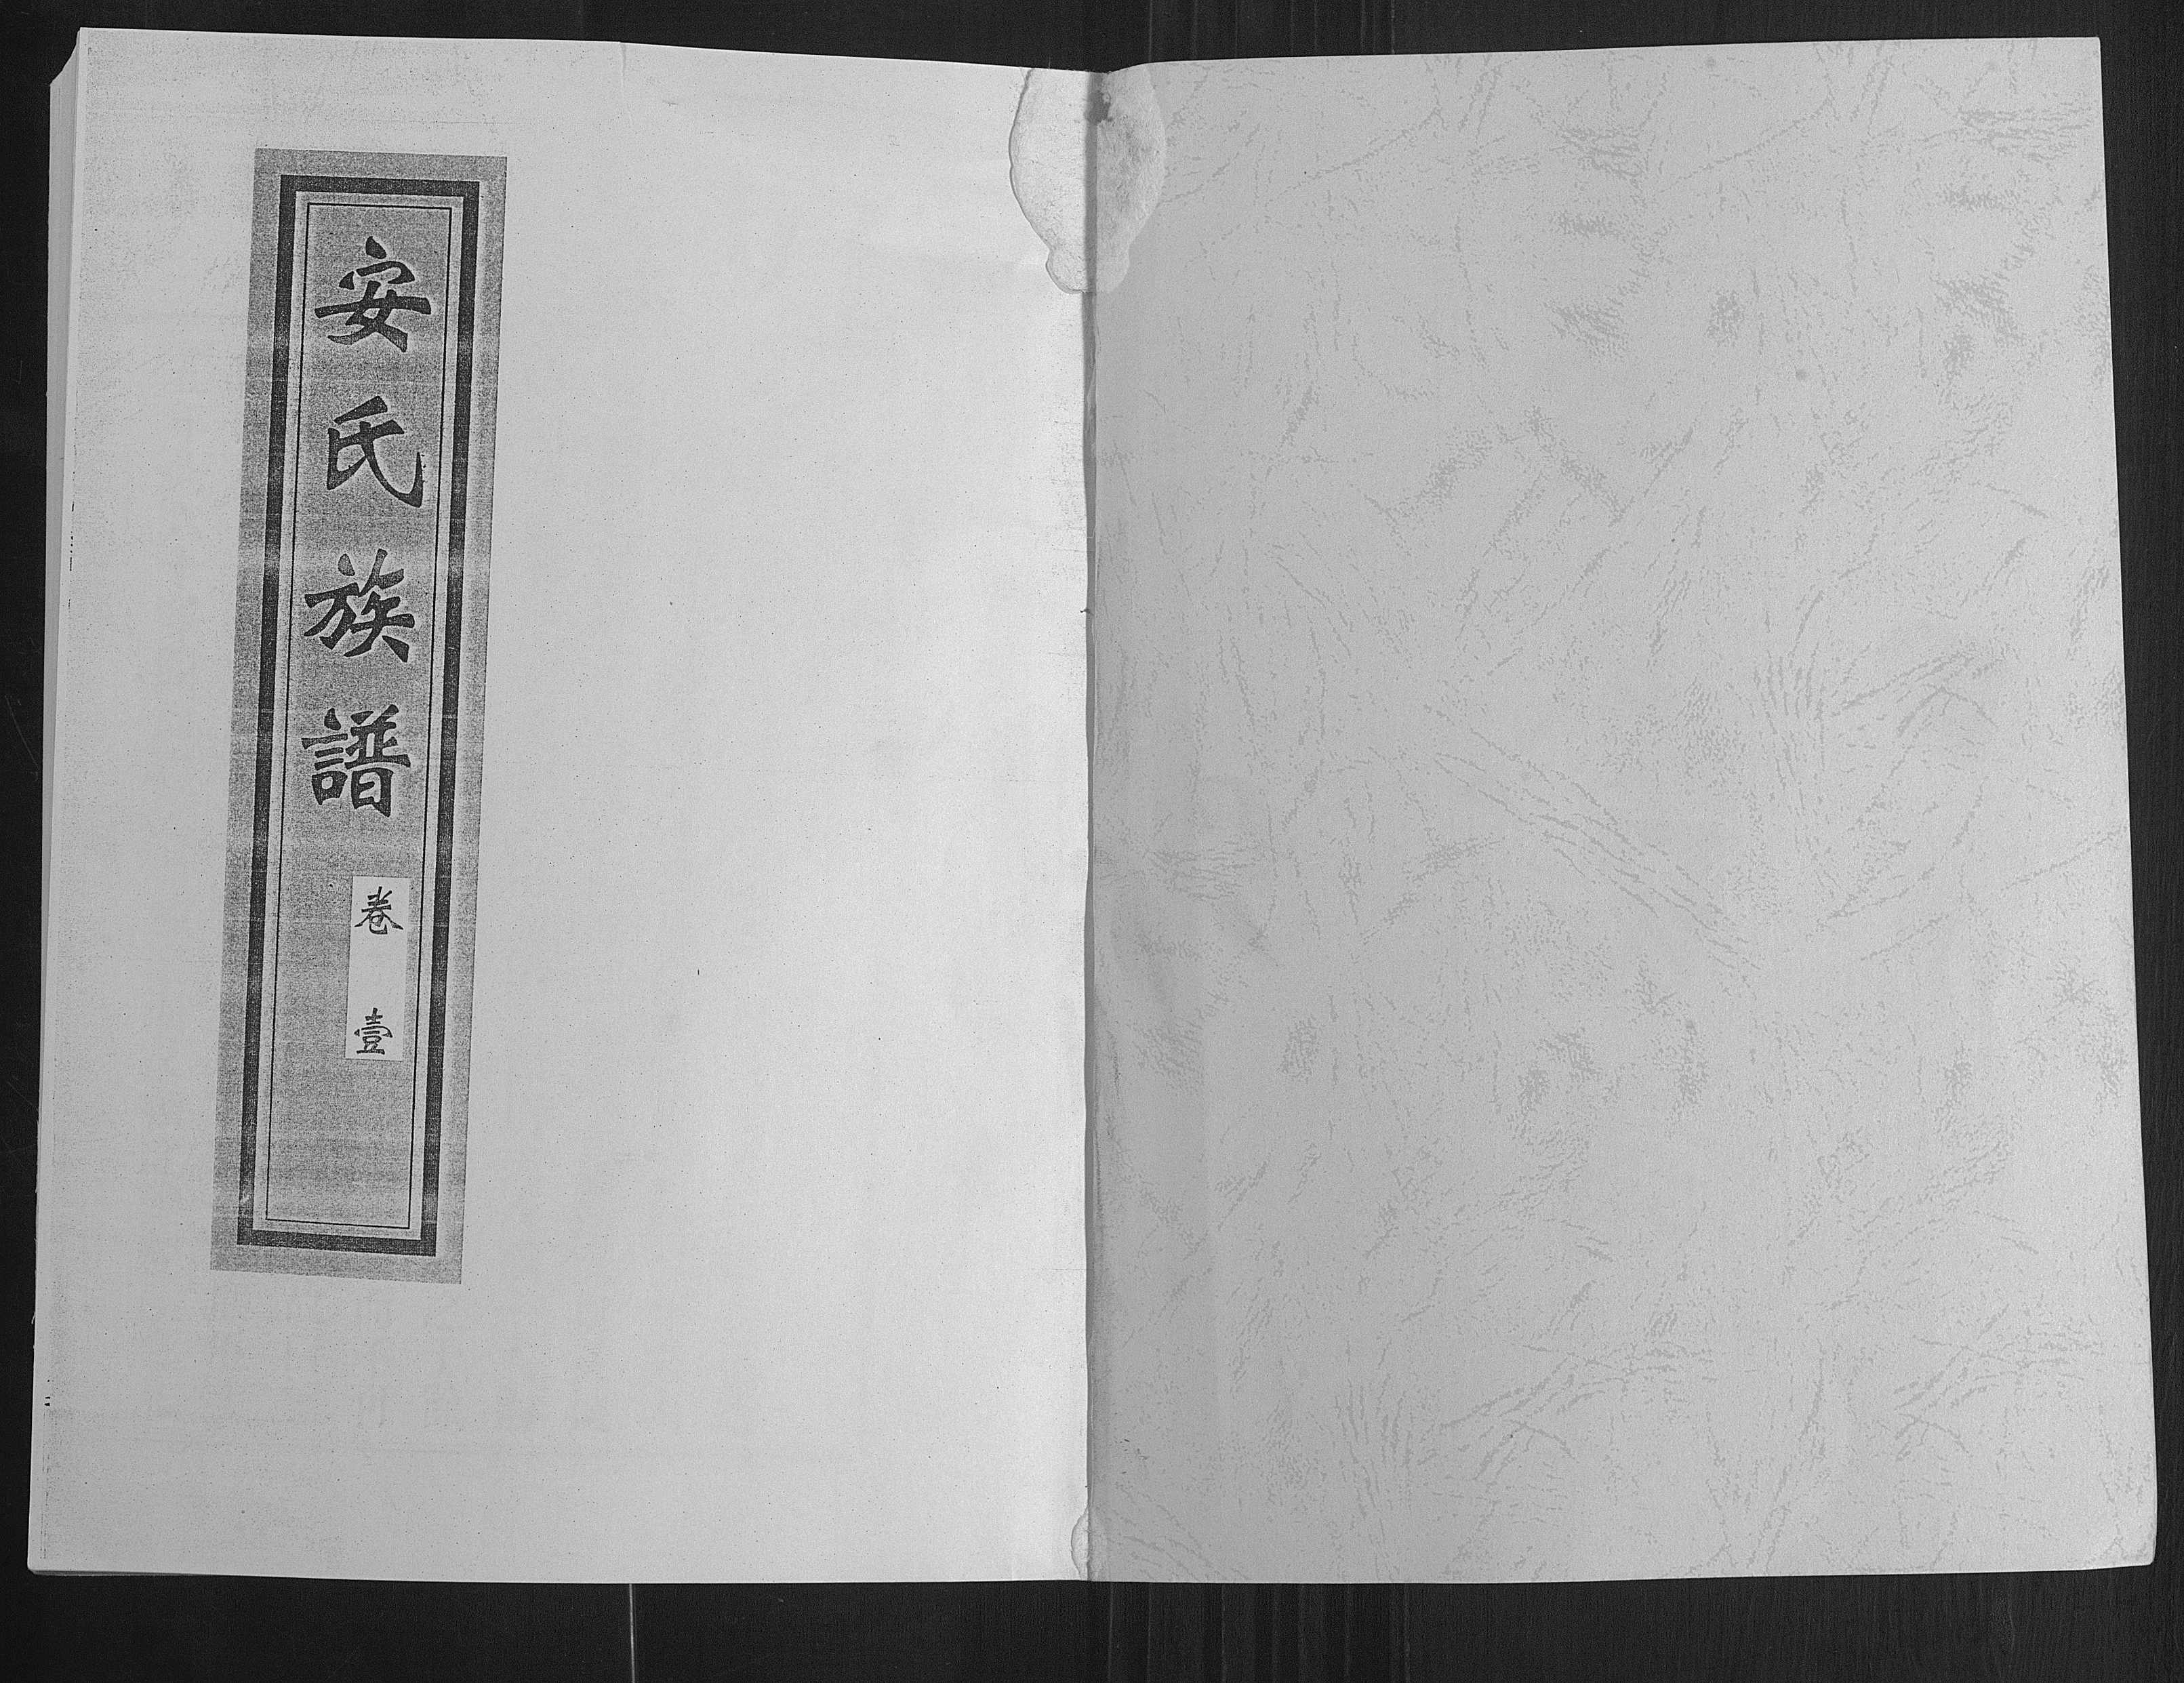 安氏族譜
卷壹